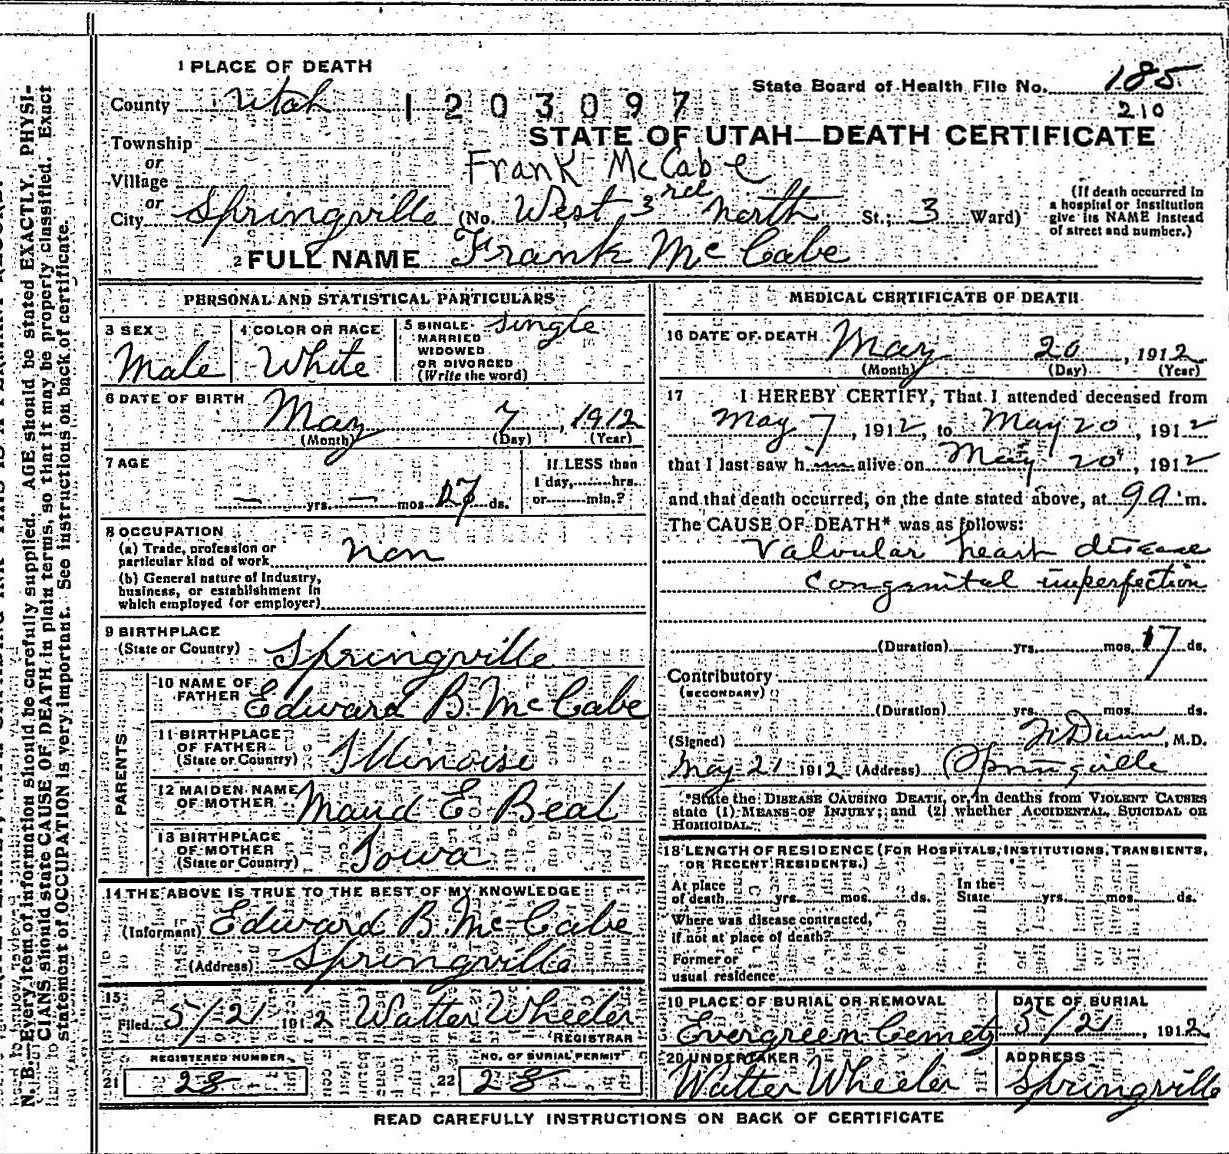 N.B. Every item of information should be carefully supplied. AGE should be stated EXACTLY. PHYSI-
CIANS should state CAUSE OF DEATH in plain terms, so that it may be properly classified. Exact
statement of OCCUPATION is very important. See instructions on back of certificate.
1 PLACE OF DEATH
County Utah 1203097
State Board of Health File No. 185
210
Township
STATE OF UTAH—DEATH CERTIFICATE
or
Village
Frank McCabe
or
City Springville (No. West 3rd north St.; 3 Ward)
(If death occurred in
a hospital or institution
give its NAME instead
of street and number.)
2 FULL NAME Frank McCabe
PERSONAL AND STATISTICAL PARTICULARS
3 SEX
Male
4 COLOR OR RACE
White
5 SINGLE
MARRIED
WIDOWED
OR DIVORCED
(Write the word)
single
6 DATE OF BIRTH
May 7, 1912
(Month) (Day) (Year)
7 AGE
— yrs. — mos. ds.
If LESS than
1 day, hrs.
or min.?
8 OCCUPATION
(a) Trade, profession or
particular kind of work non
(b) General nature of industry,
business, or establishment in
which employed (or employer)
9 BIRTHPLACE
(State or Country) Springville
PARENTS
10 NAME OF
FATHER Edward B. McCabe
11 BIRTHPLACE
OF FATHER
(State or Country) Illinoise
12 MAIDEN NAME
OF MOTHER Maud E. Beal
13 BIRTHPLACE
OF MOTHER
(State or Country) Iowa
14 THE ABOVE IS TRUE TO THE BEST OF MY KNOWLEDGE
(Informant) Edward B. McCabe
(Address) Springville
15
Filed 5/21 1912 Walter Wheeler
REGISTRAR
REGISTERED NUMBER
21 28
NO. OF BURIAL PERMIT
22 28
MEDICAL CERTIFICATE OF DEATH
16 DATE OF DEATH May 20, 1912
(Month) (Day) (Year)
17 I HEREBY CERTIFY, That I attended deceased from
May 7, 1912, to May 20, 1912
that I last saw him alive on May 20, 1912
and that death occurred, on the date stated above, at 9 a. m.
The CAUSE OF DEATH* was as follows:
Valvular heart disease
conganital imperfection
(Duration) yrs. mos. 17 ds.
Contributory
(SECONDARY)
(Duration) yrs. mos. ds.
(Signed) Dunn, M.D.
May 21 1912 (Address) Springville
*State the DISEASE CAUSING DEATH, or, in deaths from VIOLENT CAUSES
state (1) MEANS OF INJURY; and (2) whether ACCIDENTAL, SUICIDAL OR
HOMICIDAL.
18 LENGTH OF RESIDENCE (FOR HOSPITALS, INSTITUTIONS, TRANSIENTS,
OR RECENT RESIDENTS.)
At place
of death yrs. mos. ds.
In the
State yrs. mos. ds.
Where was disease contracted,
if not at place of death?
Former or
usual residence
19 PLACE OF BURIAL OR REMOVAL
Evergreen Cemety
DATE OF BURIAL
5/21, 1912
20 UNDERTAKER
Walter Wheeler
ADDRESS
Springville
READ CAREFULLY INSTRUCTIONS ON BACK OF CERTIFICATE